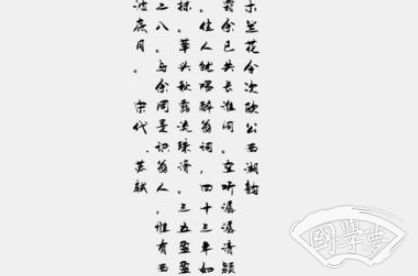 木兰花令次欧公西湖韵
霜余已失长淮阔。空听潺潺清颍
。佳人犹唱醉翁词,四十三年如
抹。草头秋露流珠滑。三五盈盈
八。与余同是识翁人,惟有西
波底月。 宋代.苏轼
國學夢